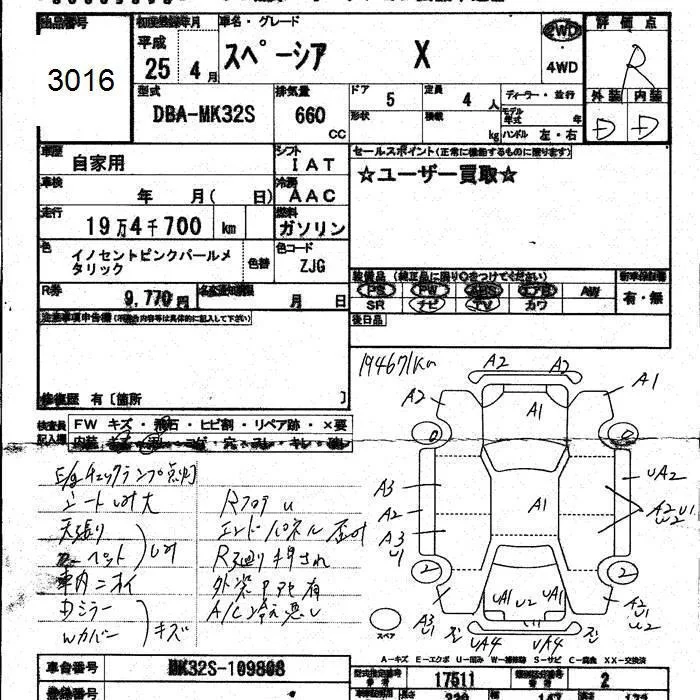 出品番号
3016
初度登録年月
平成
25 4月
車名・グレード
スペーシア X
2WD
4WD
評価点
R
外装 内装
D D
型式
DBA-MK32S
排気量
660
CC
ドア
5
定員
4人
ディーラー・並行
形状
積載
kg
モデル年式
年
ハンドル 左・右
車歴
自家用
シフト
IAT
セールスポイント(正常に機能するものに限ります)
☆ユーザー買取☆
車検
年 月( 日)
冷房
AAC
走行
19万4千700 km
燃料
ガソリン
色
イノセントピンクパールメタリック
色替
色コード
ZJG
装備品 (純正品に限り○をつけてください)
新車保証書
PS PW ABS エアB AW
有・無
SR ナビ TV カワ
R券
9,770円
名義変更期限
月 日
後日品
注意事項申告欄(不具合内容等は具体的に記入して下さい)
修復歴 有〔箇所 〕
194671Km
検査員記入欄
FW キズ・飛石・ヒビ割・リペア跡・×要
内装
E/gチェックランプ点灯
シートしみ大
天張り
しみ
車内ニオイ
Dミラー
Wカバー
キズ
Rフロアu
エンドパネル歪み
R廻り押され
A/C冷え悪い
A2 A2
A2 A1
A1
A3
A2
A3
U1
A1
UA2
A2U1
U2
2 2
A3
U1
UA1 U2 UA1
UA4 UA4
A2
U1
U2
スペア
A-キズ E-エクボ U-凹み W-補修跡 S-サビ C-腐食 XX-交換済
車台番号
MK32S-109808
登録番号
型式指定番号
17511
類別区分番号
2